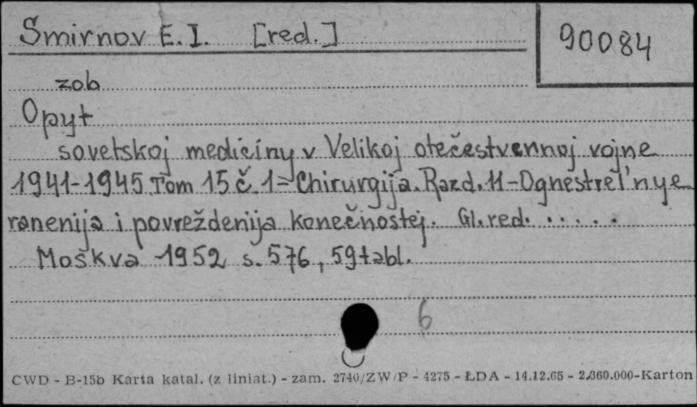 Smirnov E. I. [red.]
90084
zob
Opyt
sovetskoj mediciny v Velikoj otečestvennoj vojne
1941-1945. Tom 15 č. 1= Chirurgija. Razd. 11-Ognestrel'nye
ranenija i povreždenija konečnostej. Gl. red. . . . . .
Moškva 1952 s. 576, 59 tabl.
6
CWD - B-15b Karta katal. (z liniat.) - zam. 2740/ZW/P - 4275 - ŁDA - 14.12.65 - 2.860.000-Karton